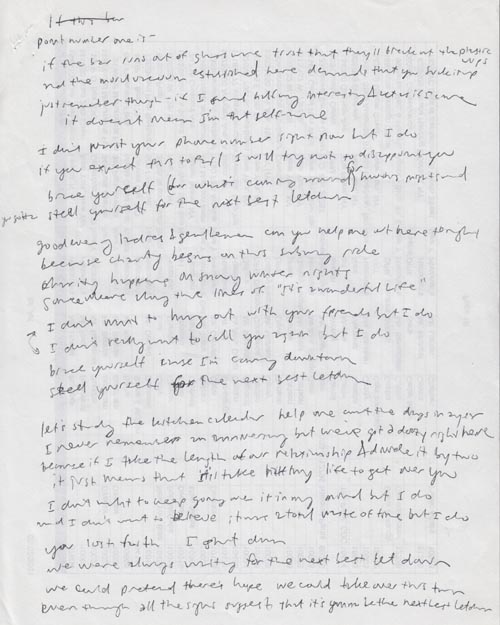 If this bar
point number one is –
if the bar runs out of glasses we trust that they'll break out the plastic cups
and the moral vacuum established here demands that you suck it up
just remember though – if I found nothing interesting & acted if I care
it doesn't mean I'm that self-
I don't want your phone number right now but I do
if you expect this to fail I will try not to disappoint you
brace yourself (for what's coming around) for hunting nights and
you gotta steel yourself for the next best letdown
good evening ladies & gentlemen can you help me out here tonight
because charity begins on this subway ride
charity happens on snowy winter nights
somewhere along the lines of "It's a wonderful life"
I don't want to hang out with your friends but I do
I don't really want to call you again but I do
brace yourself cause I'm coming downtown
steel yourself for the next best letdown
let's study the kitchen calendar help me count the days in a year
I never remember an anniversary but we've got a doozy right here
because if I take the length of our relationship & divide it by two
it just means that it'll take half my life to get over you
I don't want to keep going over it in my mind but I do
and I don't want to believe it was a total waste of time but I do
you lost faith I shut down
we were always waiting for the next best let down
we could pretend there's hope we could take over this town
even though all the signs suggest that it's gonna be the next best letdown